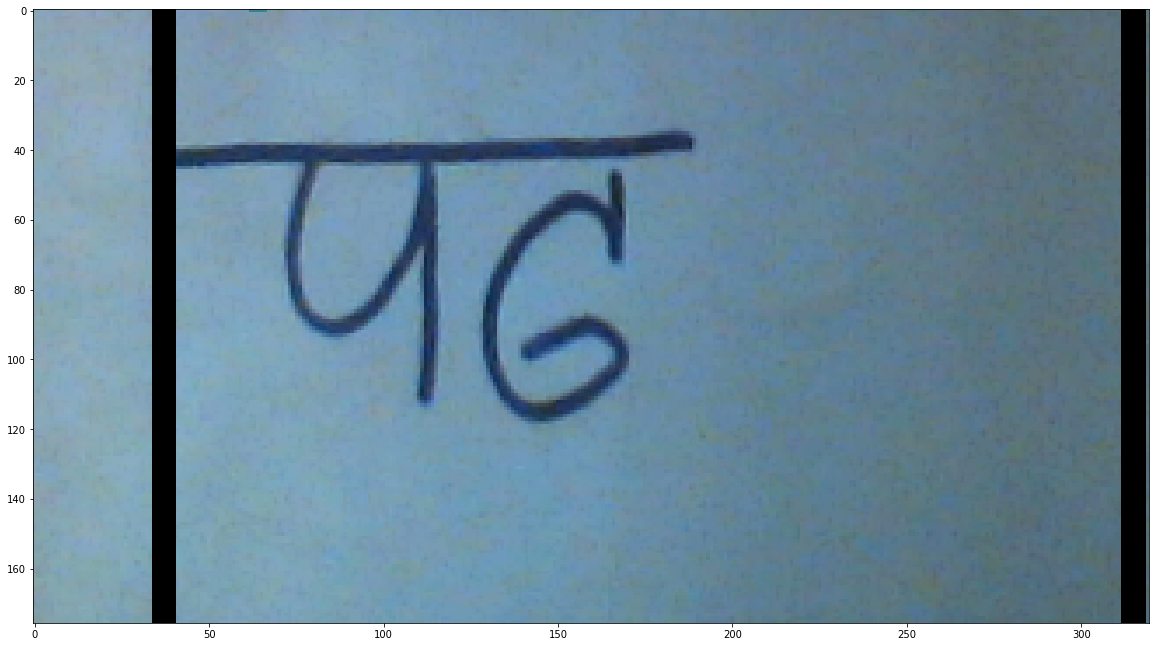 0
20
40
60
80
100
120
140
160
पढ
0 50 100 150 200 250 300